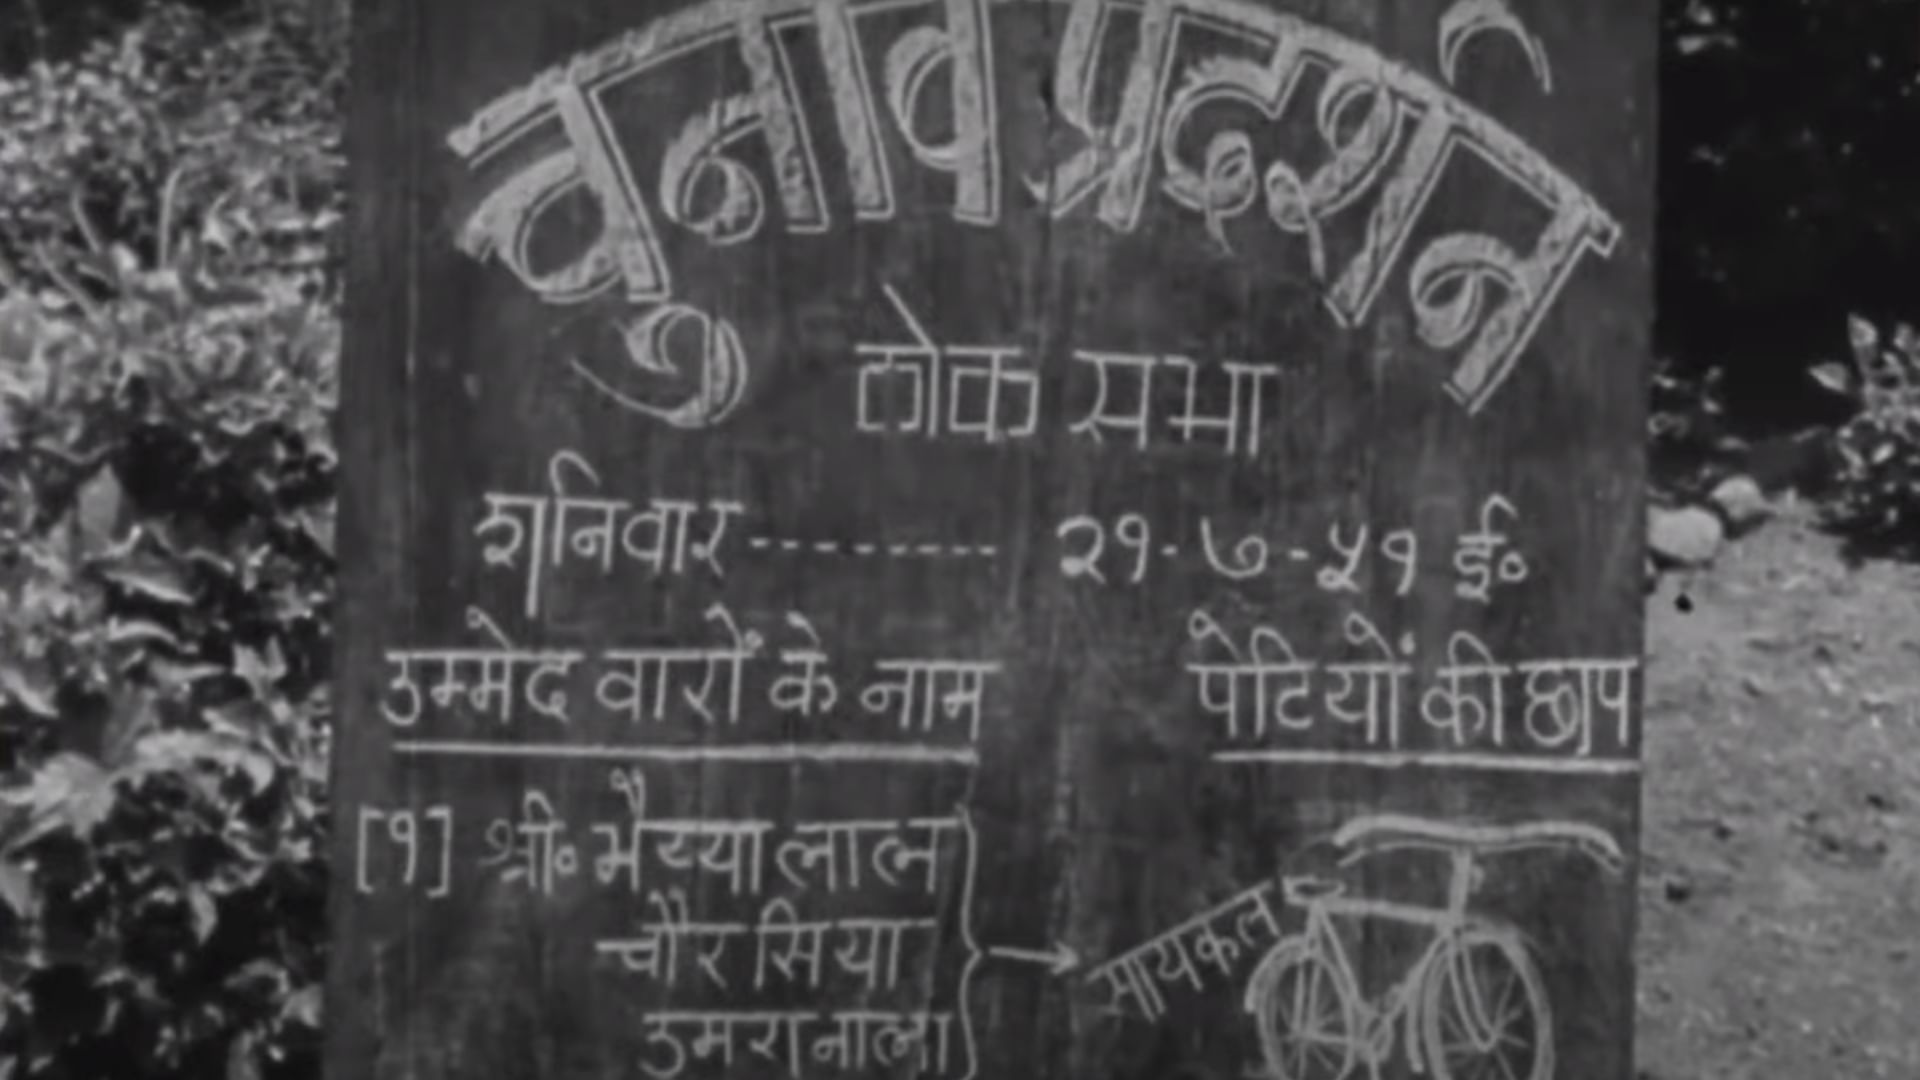 चुनाव प्रदर्शन
लोक सभा
शनिवार --------- २१-७-५१ ई०
उम्मेद वारों के नाम
पेटियों की छाप
[१] श्री० भैय्या लाल
चौर सिया
उमरा नाला
सायकल